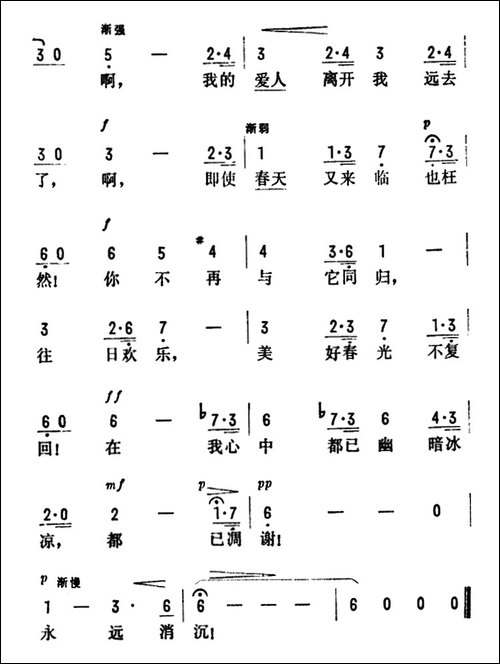 渐强
3 0 5 — 2·4 3 2·4 3 2·4
啊, 我的 爱人 离开 我 远去
f 渐弱 p
3 0 3 — 2·3 1 1·3 7 7·3
了, 啊, 即使 春天 又来 临 也枉
f
6 0 6 5 #4 4 3·6 1 —
然! 你 不 再 与 它同 归,
3 2·6 7 — 3 2·3 7 1·3
往 日欢 乐, 美 好春 光 不复
ff
6 0 6 — ♭7·3 6 ♭7·3 6 4·3
回! 在 我心 中 都已 幽 暗冰
mf p pp
2·0 2 — 1·7 6 — — 0
凉, 都 已凋 谢!
p 渐慢
1 — 3· 6 6 — — — 6 0 0 0
永 远 消 沉!